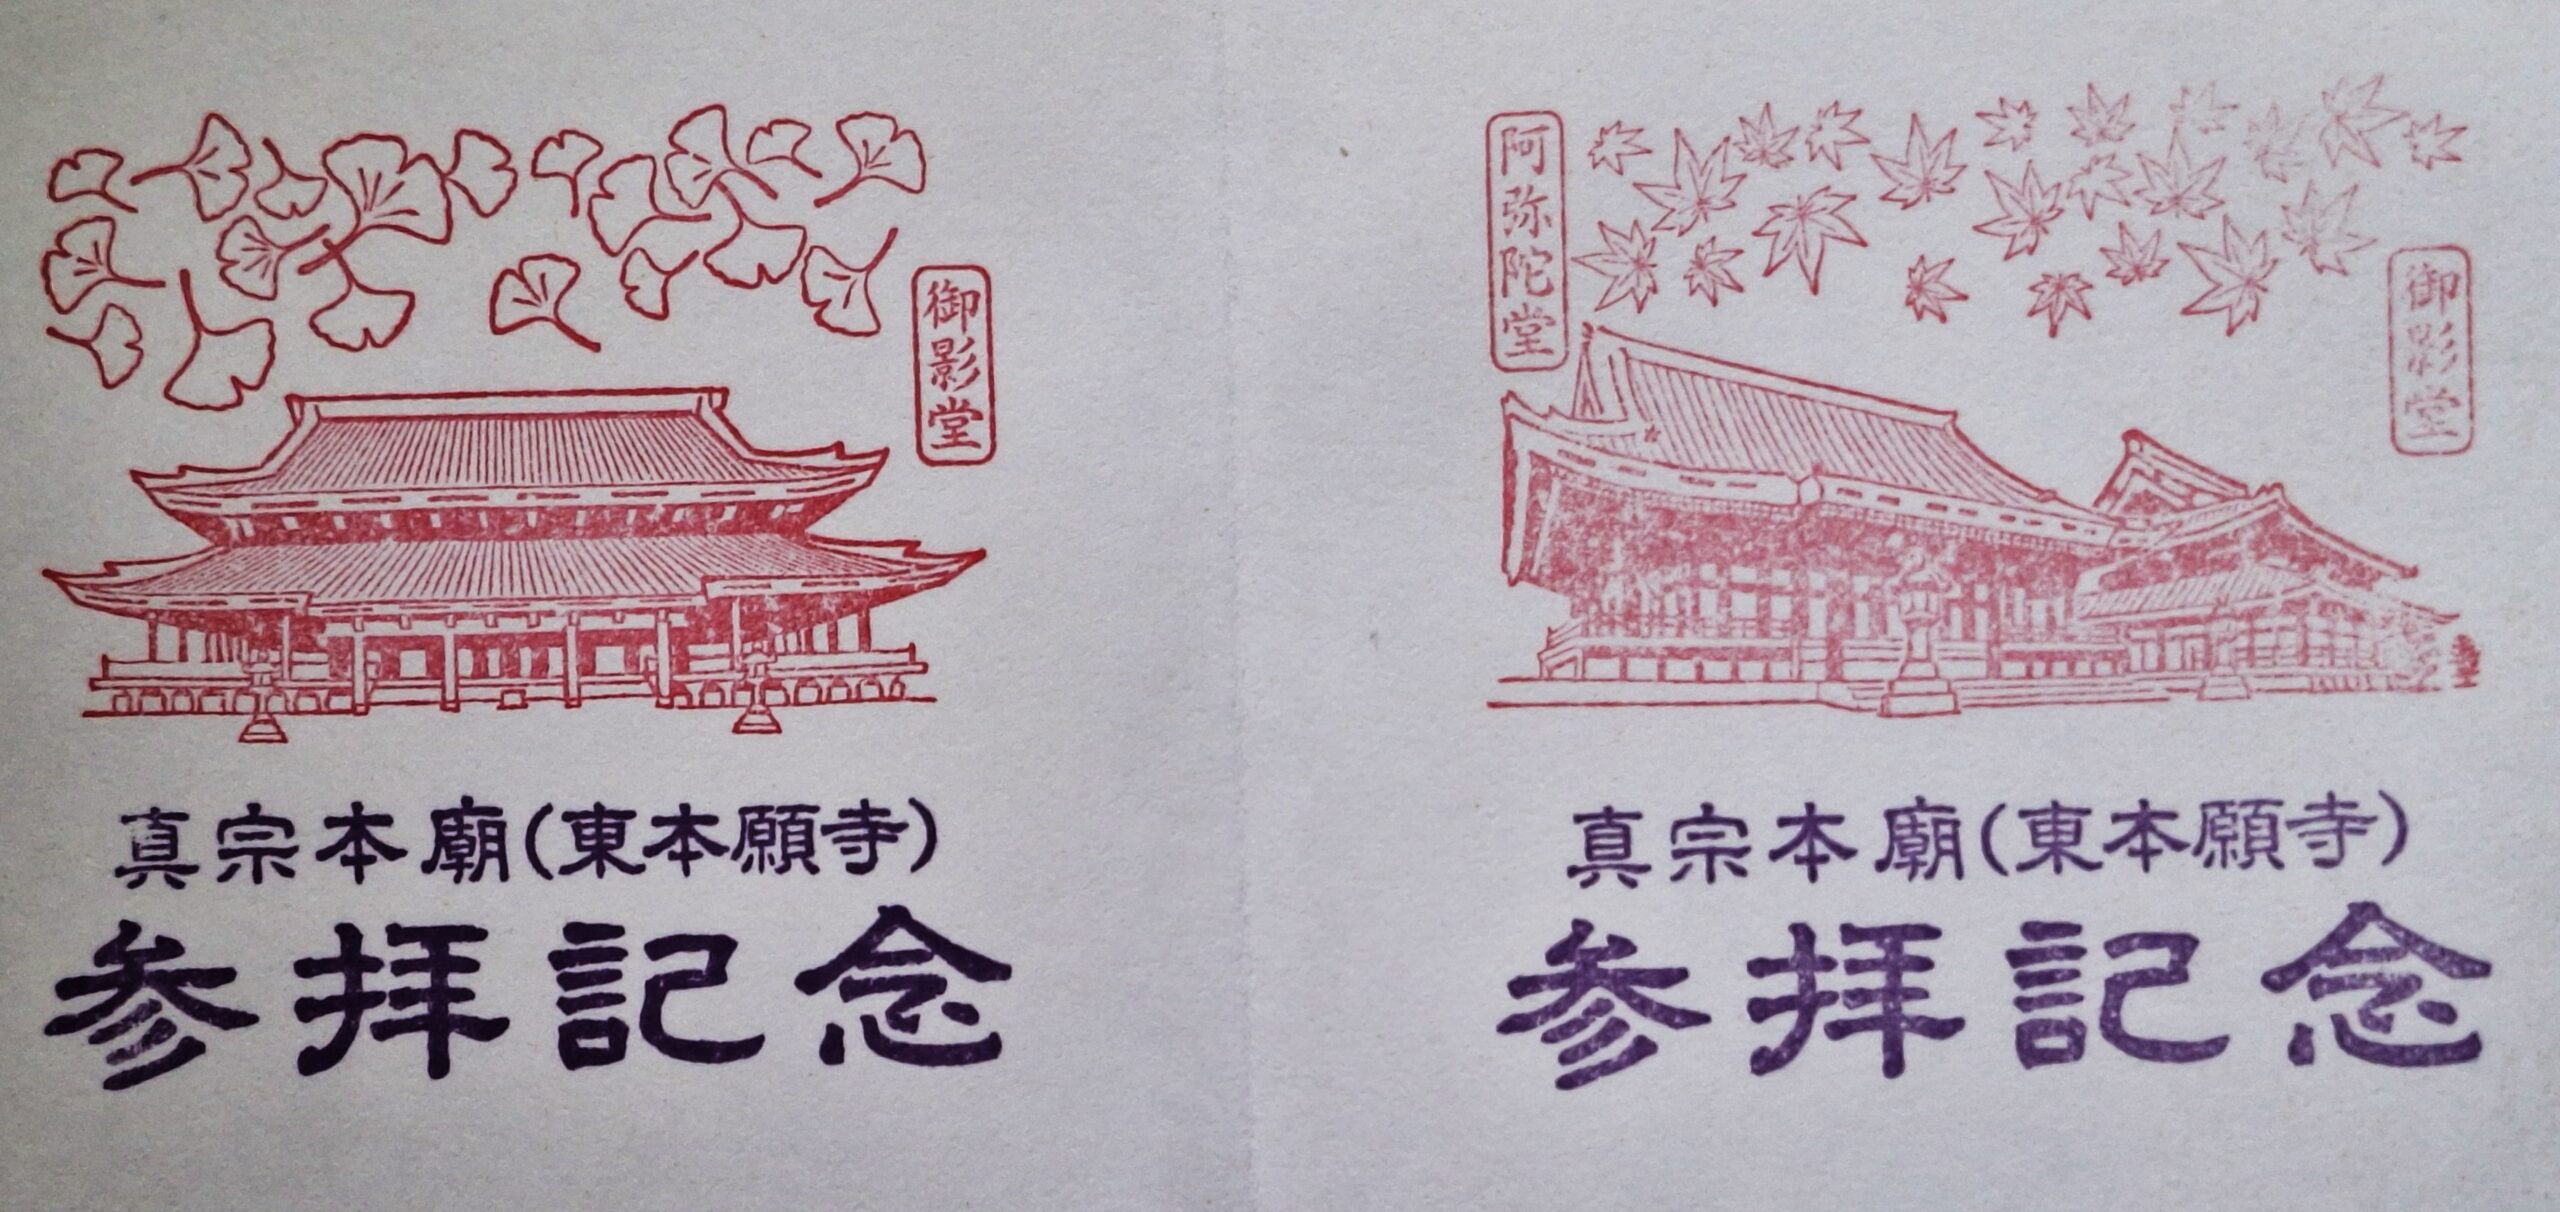 御影堂
真宗本廟(東本願寺)
参拝記念
阿弥陀堂
御影堂
真宗本廟(東本願寺)
参拝記念